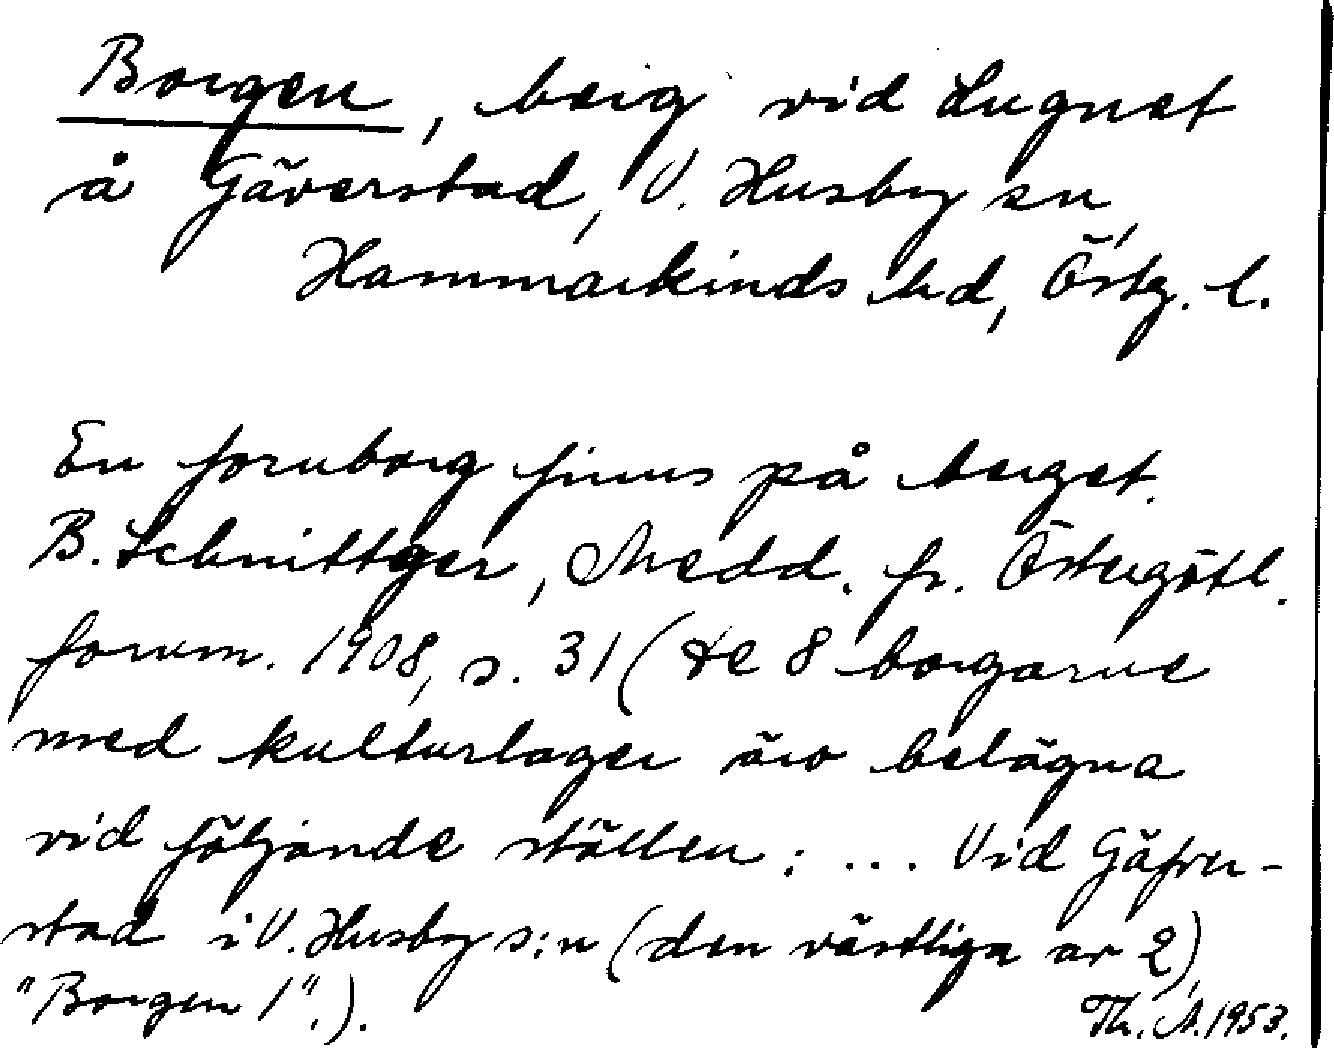 Borgen, berg vid Lugnet
å Gäverstad, V. Husby sn,
Hammarkinds hd, Östg. l.
En fornborg finns på berget.
B. Schnittger, Medd. fr. Östergötl.
fornm. 1908, s. 31 (de 8 borgarne
med kulturlager äro belägna
vid följande ställen: ... Vid Gäfver-
stad i V. Husby s:n (den västliga av 2),
"Borgen 1".).
Th. A. 1953.